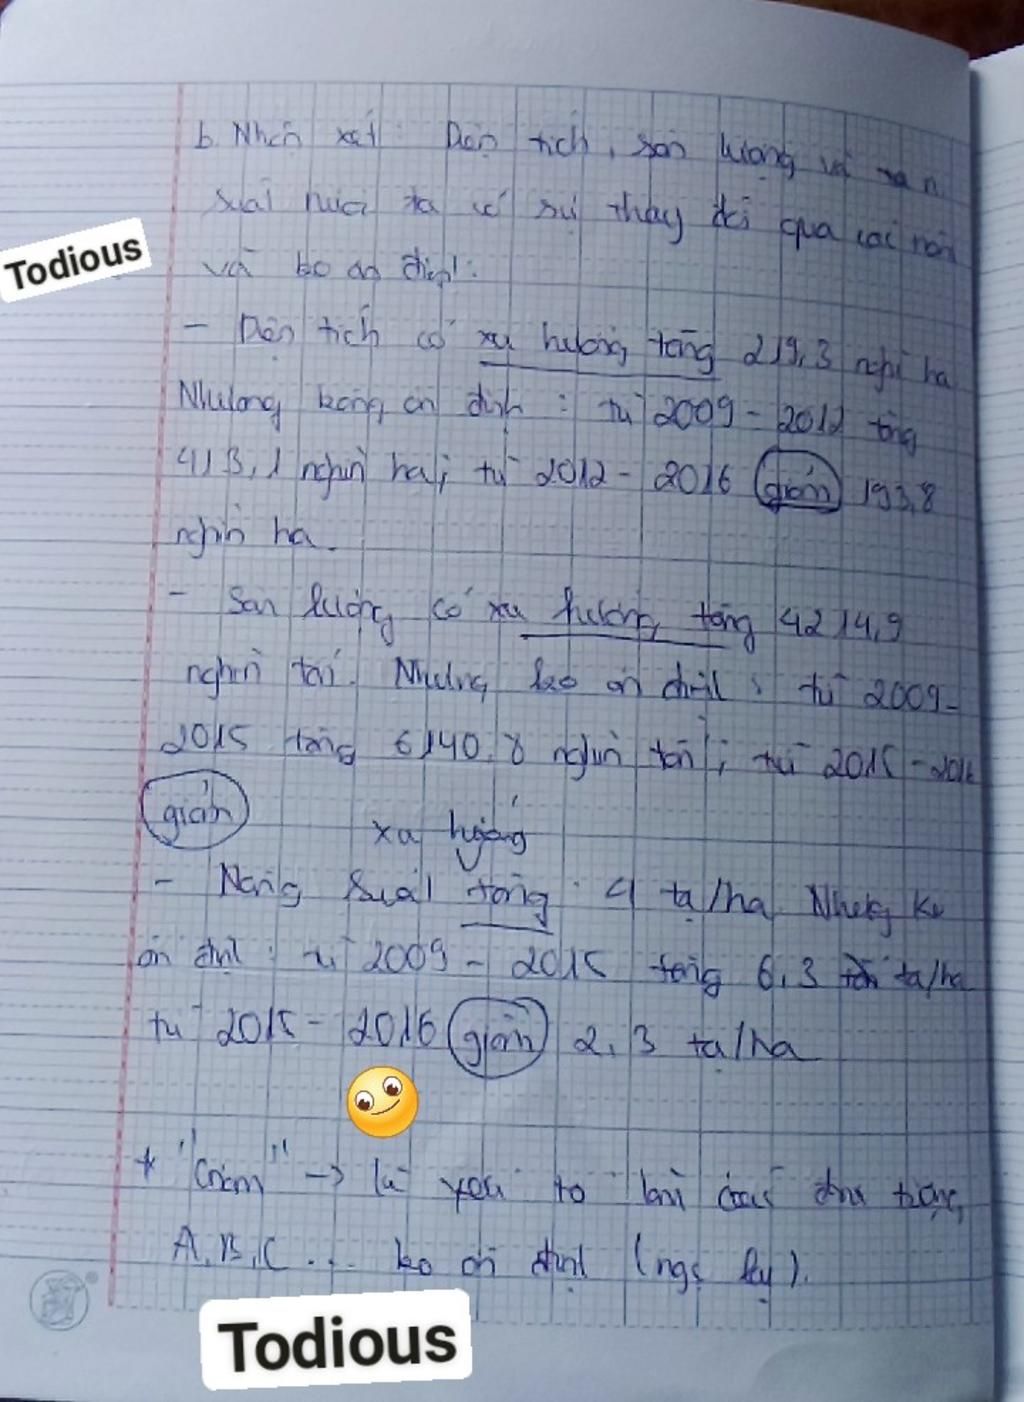 b. Nhận xét: Diện tích, sản lượng và năng
suất nước ta có sự thay đổi qua các năm
Todious
và ko ổn định:
- Diện tích có xu hướng tăng 219,3 nghì ha
Nhưng không ổn định : từ 2009 - 2012 tăng
413,1 nghìn ha; từ 2012 - 2016 giảm 193,8
nghìn ha.
- Sản lượng có xu hướng tăng 4214,9
nghìn tấn. Nhưng ko ổn định : từ 2009 -
2015 tăng 6140,8 nghìn tấn; từ 2015 - 2016
giảm
xu hướng
- Năng suất tăng : 4 tạ/ha. Nhưng ko
ổn định : từ 2009 - 2015 tăng 6,3 tạ/ha
từ 2015 - 2016 giảm 2,3 tạ/ha
* " " -> là yếu tố làm đối tượng
A, B, C ... ko ổn định
Todious